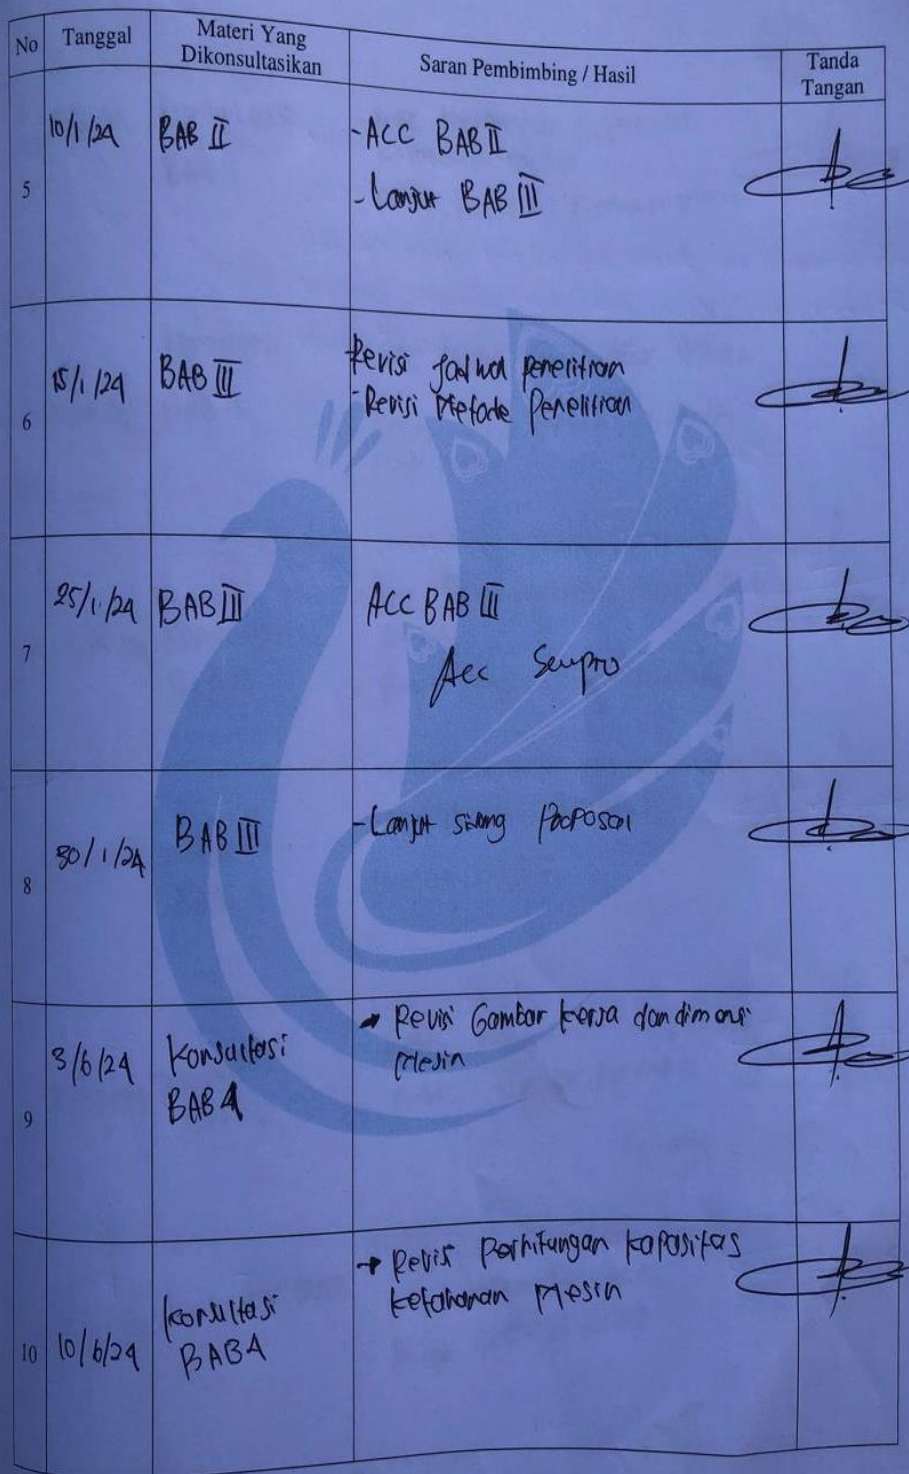 No Tanggal Materi Yang Dikonsultasikan Saran Pembimbing / Hasil Tanda Tangan
5 10/1/24 BAB II - ACC BAB II
- Lanjut BAB III
6 15/1/24 BAB III Revisi Jadwal Penelitian
- Revisi Metode Penelitian
7 25/1/24 BAB III ACC BAB III
Acc Sempro
8 30/1/24 BAB III - Lanjut sidang Proposal
9 3/6/24 Konsultasi BAB 4 Revisi Gambar kerja dan dimensi
Mesin
10 10/6/24 Konsultasi BAB 4 → Revisi Perhitungan kapasitas
ketahanan Mesin